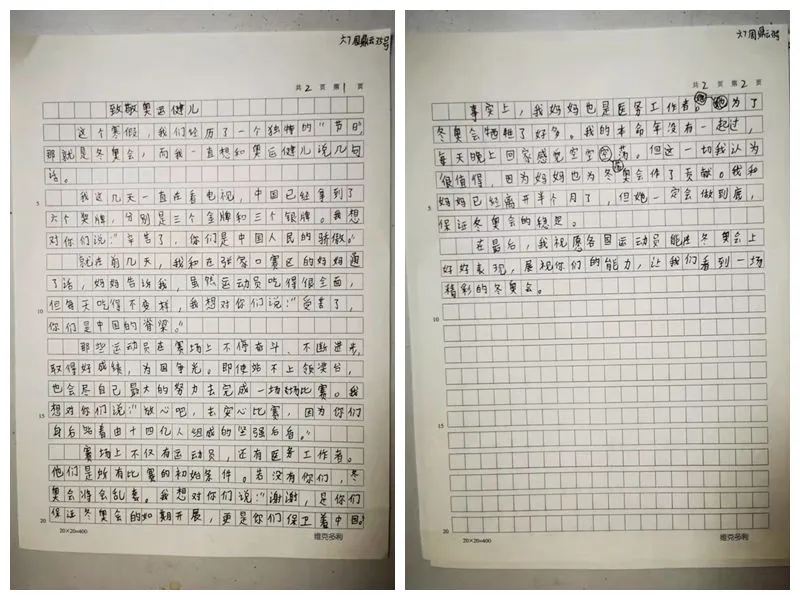 六7周鼎云35号
共2页 第1页
致敬奥运健儿
这个寒假，我们经历了一个独特的“节日”，
那就是冬奥会，而我一直想和奥运健儿说几句
话。
我这几天一直在看电视，中国已经拿到了
5
六个奖牌，分别是三个金牌和三个银牌。我想
对你们说：“辛苦了，你们是中国人民的骄傲。”
就在前几天，我和在张家口赛区的妈妈通
了话，妈妈告诉我，虽然运动员吃得很全面，
10
但每天吃得不变样，我想对你们说：“受苦了，
你们是中国的脊梁。”
那些运动员在赛场上不停奋斗、不断进步，
取得好成绩，为国争光。即使站不上领奖台，
也会尽自己最大的努力去完成一场场比赛。我
15
想对你们说：“放心吧，去安心比赛，因为你们
身后站着由十四亿人组成的坚强后盾。”
赛场上不仅有运动员，还有医务工作者。
他们是所有比赛的初始条件。若没有你们，冬
奥会将会乱套。我想对你们说：“谢谢，是你们
20
保证冬奥会的如期开展，更是你们保卫着中国。”
20×20=400
维克多利
六7周鼎云35号
共2页 第2页
事实上，我妈妈也是医务工作者。她为了
冬奥会牺牲了好多。我的本命年没有一起过，
每天晚上回家感觉空空荡荡。但这一切我认为
很值得，因为妈妈也为冬奥会作了贡献。我和
5
妈妈已经离开半个月了，但她一定会做到底，
保证冬奥会的稳定。
在最后，我祝愿各国运动员能在冬奥会上
好好表现，展现你们的能力，让我们看到一场
精彩的冬奥会。
10
15
20
20×20=400
维克多利